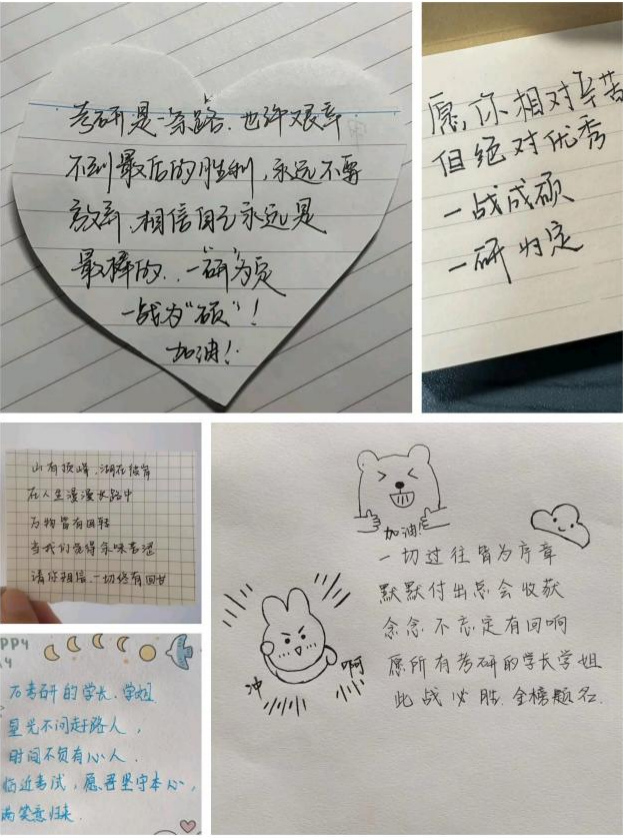 考研是一条路.也许艰辛.
不到最后的胜利,永远不要
放弃.相信自己永远是
最棒的..一研为定
一战为“硕”!
加油!
愿你相对辛苦
但绝对优秀
一战成硕
一研为定
山有顶峰,湖有彼岸
在人生漫漫长路中
万物皆有回转
当我们觉得余味苦涩
请你相信,一切终有回甘
PPY
方考研的学长、学姐
星光不问赶路人,
时间不负有心人.
临近考试,愿君坚守本心,
满笑意归来.
加油!
一切过往皆为序章
默默付出总会收获
念念不忘定有回响
愿所有考研的学长学姐
此战必胜.金榜题名.
冲
啊